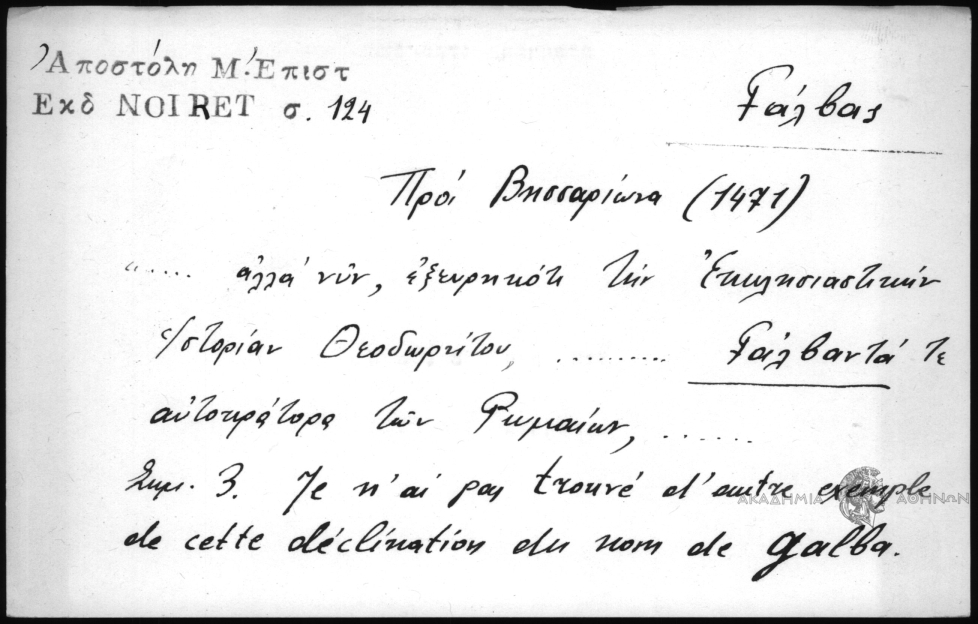 Ἀποστόλη Μ. Ἐπιστ
Εκδ NOIRET σ. 124
Γάλβας
Πρός Βησσαρίωνα (1471)
"..... ἀλλά νῦν, ἐξευρηκότι τήν Ἐκκλησιαστικήν
Ἱστορίαν Θεοδωρήτου, ......... Γάλβαντά τε
αὐτοκράτορα τῶν Ρωμαίων, ......
Σημ. 3. Je n'ai pas trouvé d'autre exemple
de cette déclination du nom de Galba.
ΑΚΑΔΗΜΙΑ ΑΘΗΝΩΝ